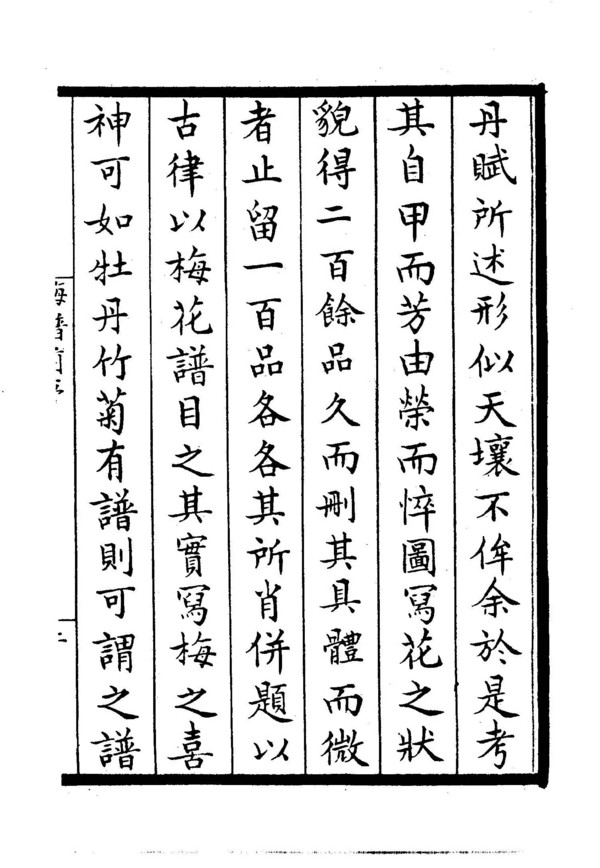 丹賦所述形似天壤不侔余於是考
其自甲而芳由榮而悴圖寫花之狀
貌得二百餘品久而刪其具體而微
者止留一百品各各其所肖併題以
古律以梅花譜目之其實寫梅之喜
神可如牡丹竹菊有譜則可謂之譜